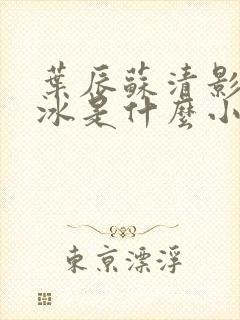 葉辰蘇清影
冰是什麼小
東京漂浮